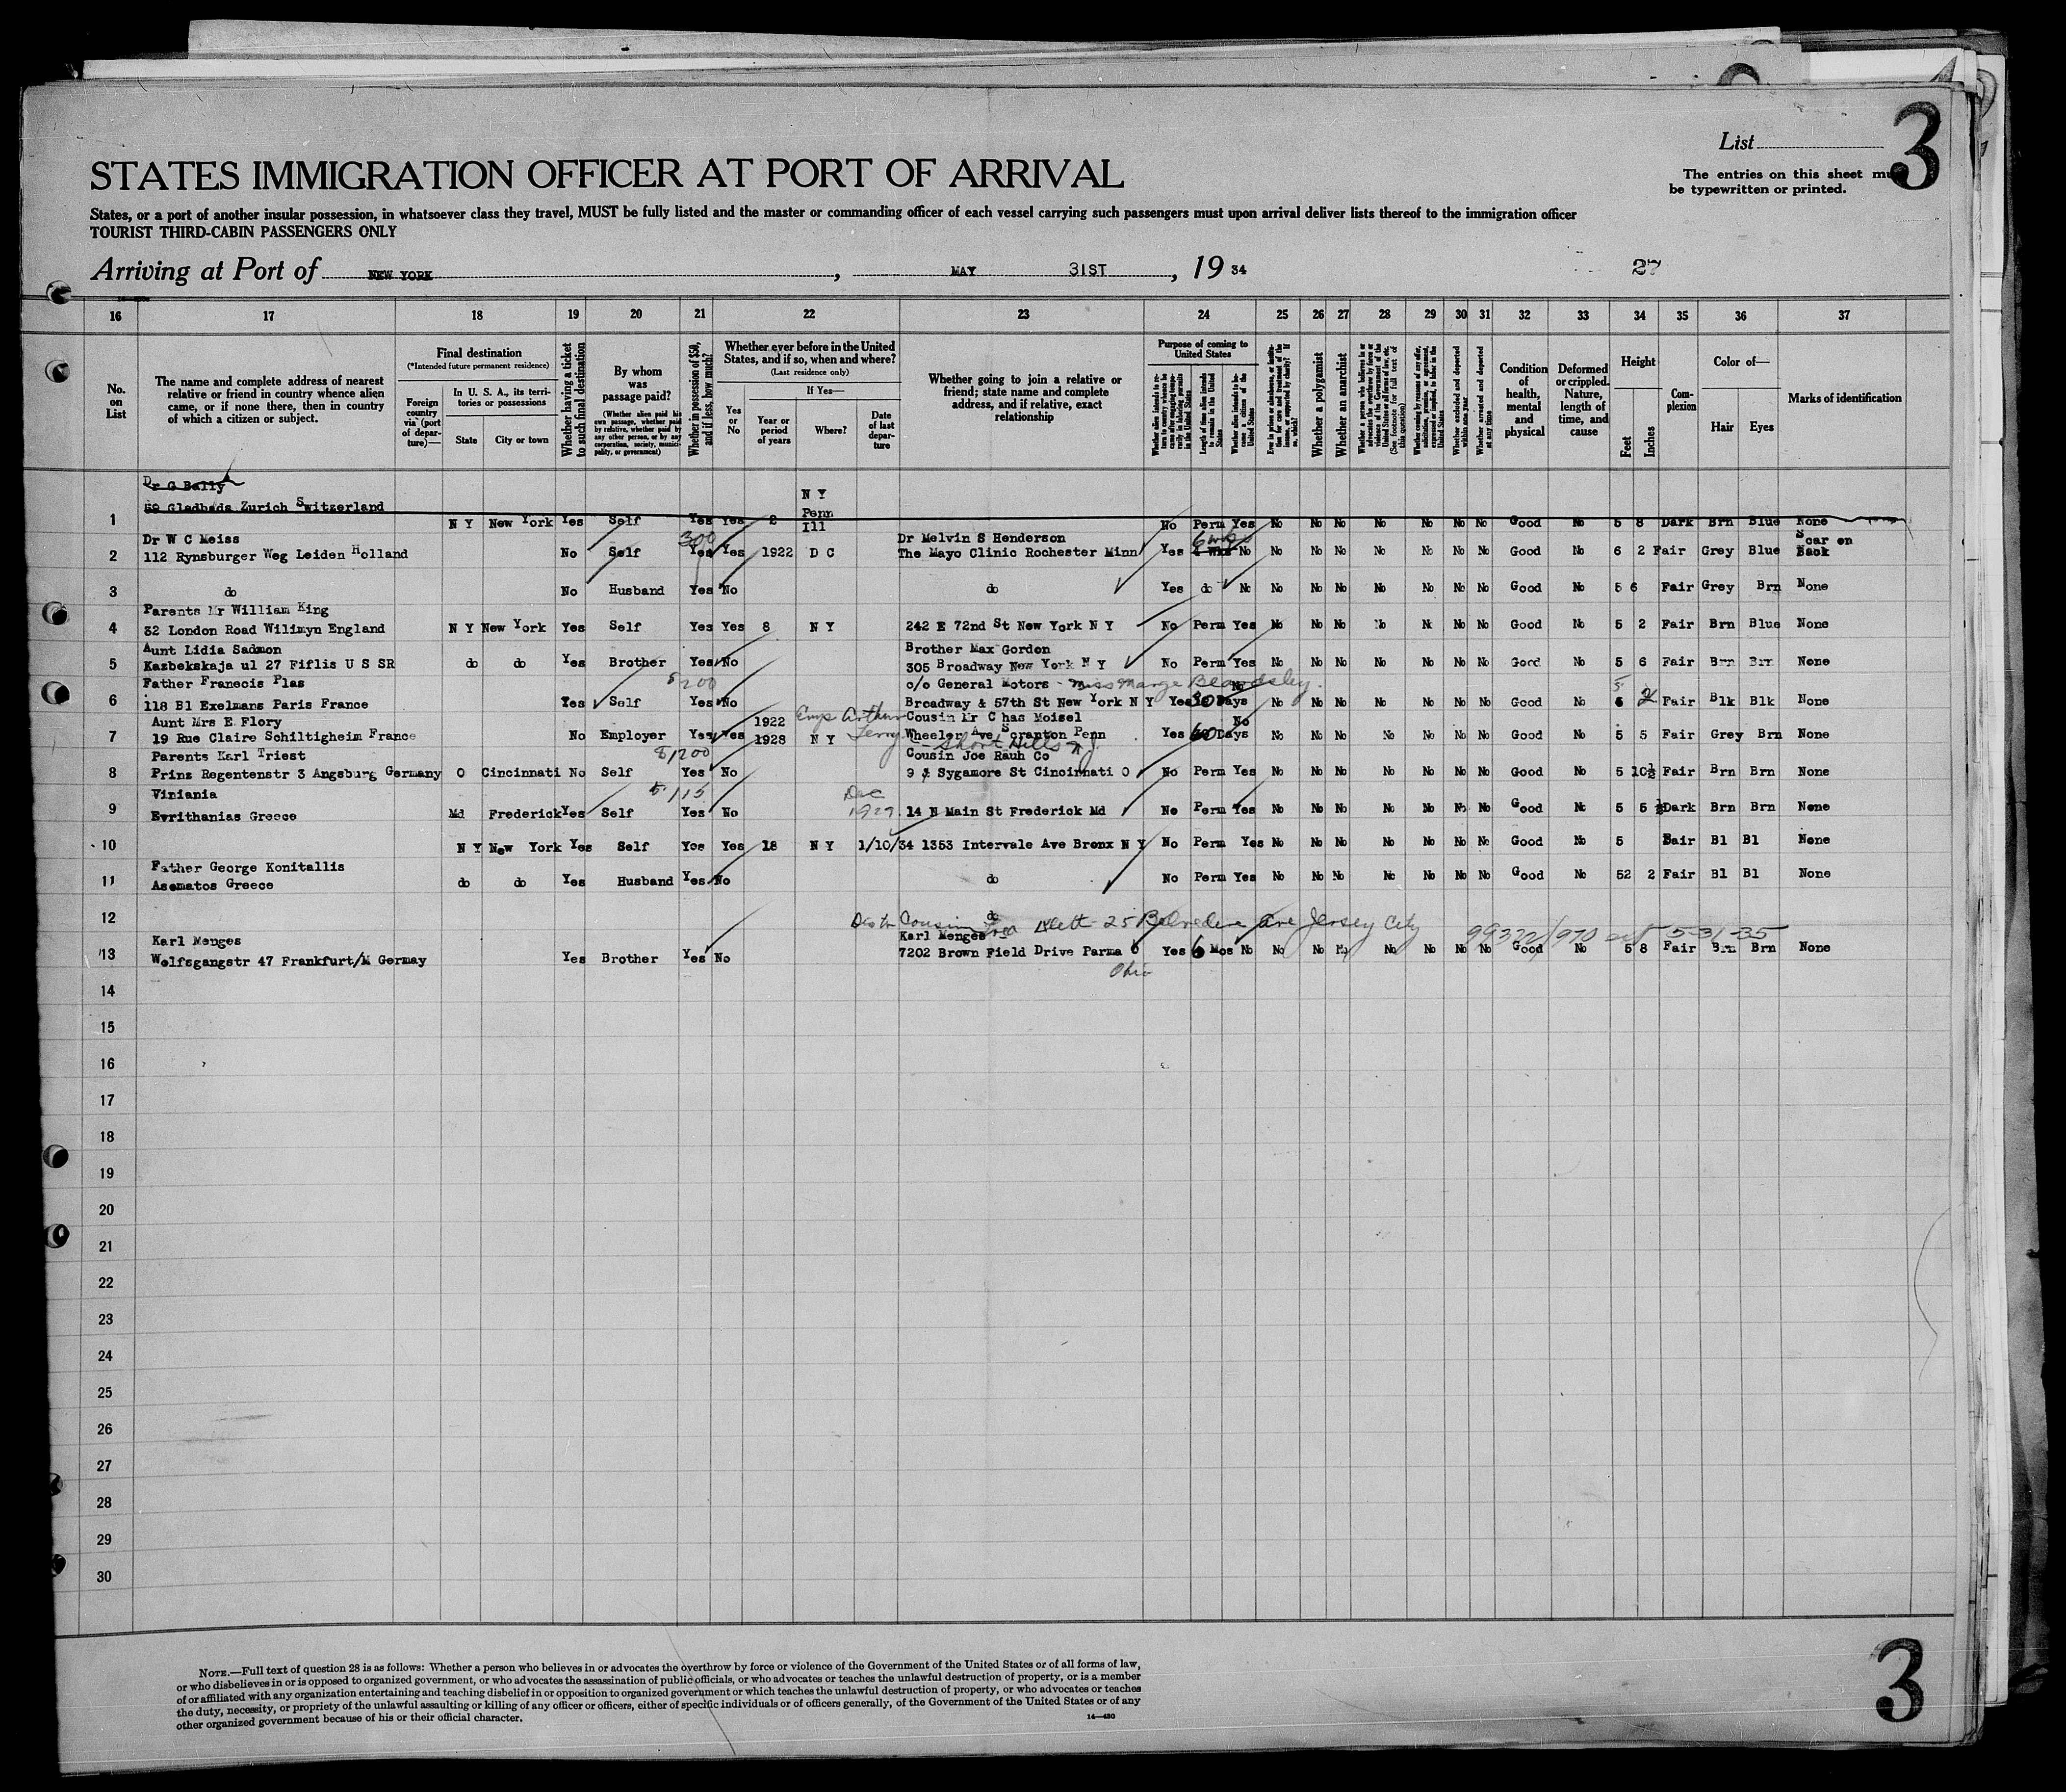 List
3
The entries on this sheet must
be typewritten or printed.
STATES IMMIGRATION OFFICER AT PORT OF ARRIVAL
States, or a port of another insular possession, in whatsoever class they travel, MUST be fully listed and the master or commanding officer of each vessel carrying such passengers must upon arrival deliver lists thereof to the immigration officer
TOURIST THIRD-CABIN PASSENGERS ONLY
Arriving at Port of NEW YORK, MAY 31ST, 19 34
27
16 17 18 19 20 21 22 23 24 25 26 27 28 29 30 31 32 33 34 35 36 37
No. on List
The name and complete address of nearest relative or friend in country whence alien came, or if none there, then in country of which a citizen or subject.
Final destination
(*Intended future permanent residence)
Foreign country via (port of departure)—
In U. S. A., its territories or possessions
State
City or town
Whether having a ticket to such final destination
By whom was passage paid?
(Whether alien paid his own passage, whether paid by relative, whether paid by any other person, or by any corporation, society, municipality, or government)
Whether in possession of $50, and if less, how much?
Whether ever before in the United States, and if so, when and where?
(Last residence only)
Yes or No
If Yes—
Year or period of years
Where?
Date of last departure
Whether going to join a relative or friend; state name and complete address, and if relative, exact relationship
Purpose of coming to United States
Length of time alien intends to remain in the United States
Whether alien intends to become a citizen of the United States
Whether a polygamist
Whether an anarchist
Whether excluded and deported within one year
Whether arrested and deported at any time
Condition of health, mental and physical
Deformed or crippled. Nature, length of time, and cause
Height
Feet
Inches
Complexion
Color of—
Hair
Eyes
Marks of identification
Dr G Bally
59 Gladbads Zurich Switzerland
N Y
Penn
Ill
1 N Y New York Yes Self Yes Yes 2 No Perm Yes No No No No No No No Good No 5 8 Dark Brn Blue None
Dr W C Meiss 300 Dr Melvin S Henderson 6 wks Scar on
2 112 Rynsburger Weg Leiden Holland No Self Yes Yes 1922 D C The Mayo Clinic Rochester Minn Yes Wks No No No No No No No No Good No 6 2 Fair Grey Blue Back
3 do No Husband Yes No do Yes do No No No No No No No No Good No 5 6 Fair Grey Brn None
Parents Mr William King
4 32 London Road Wilimyn England N Y New York Yes Self Yes Yes 8 N Y 242 E 72nd St New York N Y No Perm Yes No No No No No No No Good No 5 2 Fair Brn Blue None
Aunt Lidia Sadmon Brother Max Gordon
5 Kazbekskaja ul 27 Fiflis U S SR do do Yes Brother Yes No 305 Broadway New York N Y No Perm Yes No No No No No No No Good No 5 6 Fair Brn Brn None
Father Franecis Plas $200 c/o General Motors - Miss Marge Beardsley. No 5
6 118 Bl Exelmans Paris France Yes Self Yes No Broadway & 57th St New York N Y Yes 30 Days No No No No No No No Good No 2 Fair Blk Blk None
Aunt Mrs E Flory 1922 Emp Arthur Cousin Mr Chas Moisel No
7 19 Rue Claire Schiltigheim France No Employer Yes Yes 1928 N Y Terry Wheeler Ave Scranton Penn Yes 60 Days No No No No No No No Good No 5 5 Fair Grey Brn None
Short Hills N.J.
Parents Karl Triest $1200 Cousin Joe Rauh Co
8 Prinz Regentenstr 3 Angsburg Germany O Cincinnati No Self Yes No 9 & Sygamore St Cincinnati O No Perm Yes No No No No No No No Good No 5 10½ Fair Brn Brn None
Viniania $115 Dec
9 Evrithanias Greece Md Frederick Yes Self Yes No 1927 14 N Main St Frederick Md No Perm Yes No No No No No No No Good No 5 5½ Dark Brn Brn None
10 N Y New York Yes Self Yes Yes 18 N Y 1/10/34 1353 Intervale Ave Bronx N Y No Perm Yes No No No No No No No Good No 5 Fair Bl Bl None
Father George Konitallis
11 Asematos Greece do do Yes Husband Yes No do No Perm Yes No No No No No No No Good No 52 2 Fair Bl Bl None
12 do
Cousin 25 Belvedere Ave Jersey City 5-31-35
Karl Menges Karl Menges
13 Wolfsgangstr 47 Frankfurt/M Germay Yes Brother Yes No 7202 Brown Field Drive Parma O Yes 6 Mos No No No No No No No No Good No 5 8 Fair Brn Brn None
Ohio
14
15
16
17
18
19
20
21
22
23
24
25
26
27
28
29
30
NOTE.—Full text of question 28 is as follows: Whether a person who believes in or advocates the overthrow by force or violence of the Government of the United States or of all forms of law,
or who disbelieves in or is opposed to organized government, or who advocates the assassination of public officials, or who advocates or teaches the unlawful destruction of property, or is a member
of or affiliated with any organization entertaining and teaching disbelief in or opposition to organized government or which teaches the unlawful destruction of property, or who advocates or teaches
the duty, necessity, or propriety of the unlawful assaulting or killing of any officer or officers, either of specific individuals or of officers generally, of the Government of the United States or of any
other organized government because of his or their official character.
14—430
3